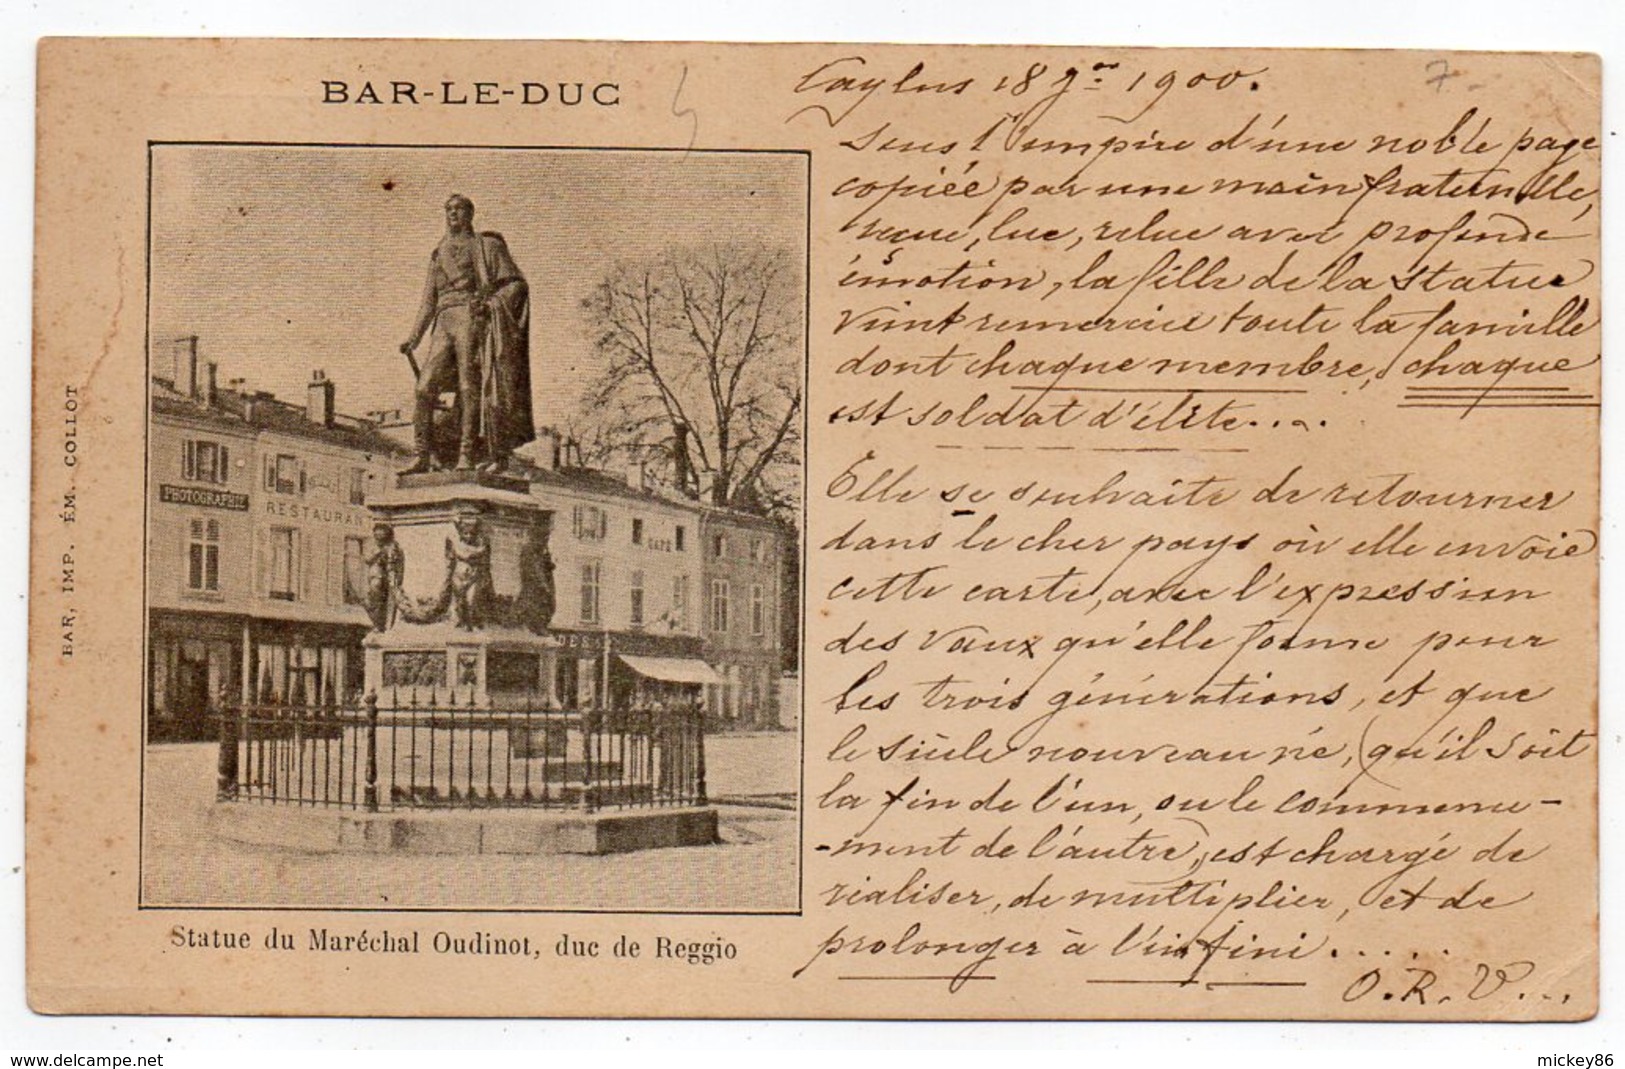 BAR-LE-DUC
BAR, IMP. ÉM. COLLOT
PHOTOGRAPHIE
RESTAURANT
CAFÉ
DES
Statue du Maréchal Oudinot, duc de Reggio
Caylus 18 Jer 1900.
7
Sous l'empire d'une noble page
copiée par une main fraternelle,
reçue, lue, relue avec profonde
émotion, la fille de la statue
vient remercier toute la famille
dont chaque membre, chaque
est soldat d'élite....
Elle se souhaite de retourner
dans le cher pays où elle envoie
cette carte, avec l'expression
des vœux qu'elle forme pour
les trois générations, et que
le siècle nouveau né, (qu'il soit
la fin de l'un, ou le commence-
-ment de l'autre), est chargé de
réaliser, de multiplier, et de
prolonger à l'infini.....
O. R. V...
delcampe.net
mickey86